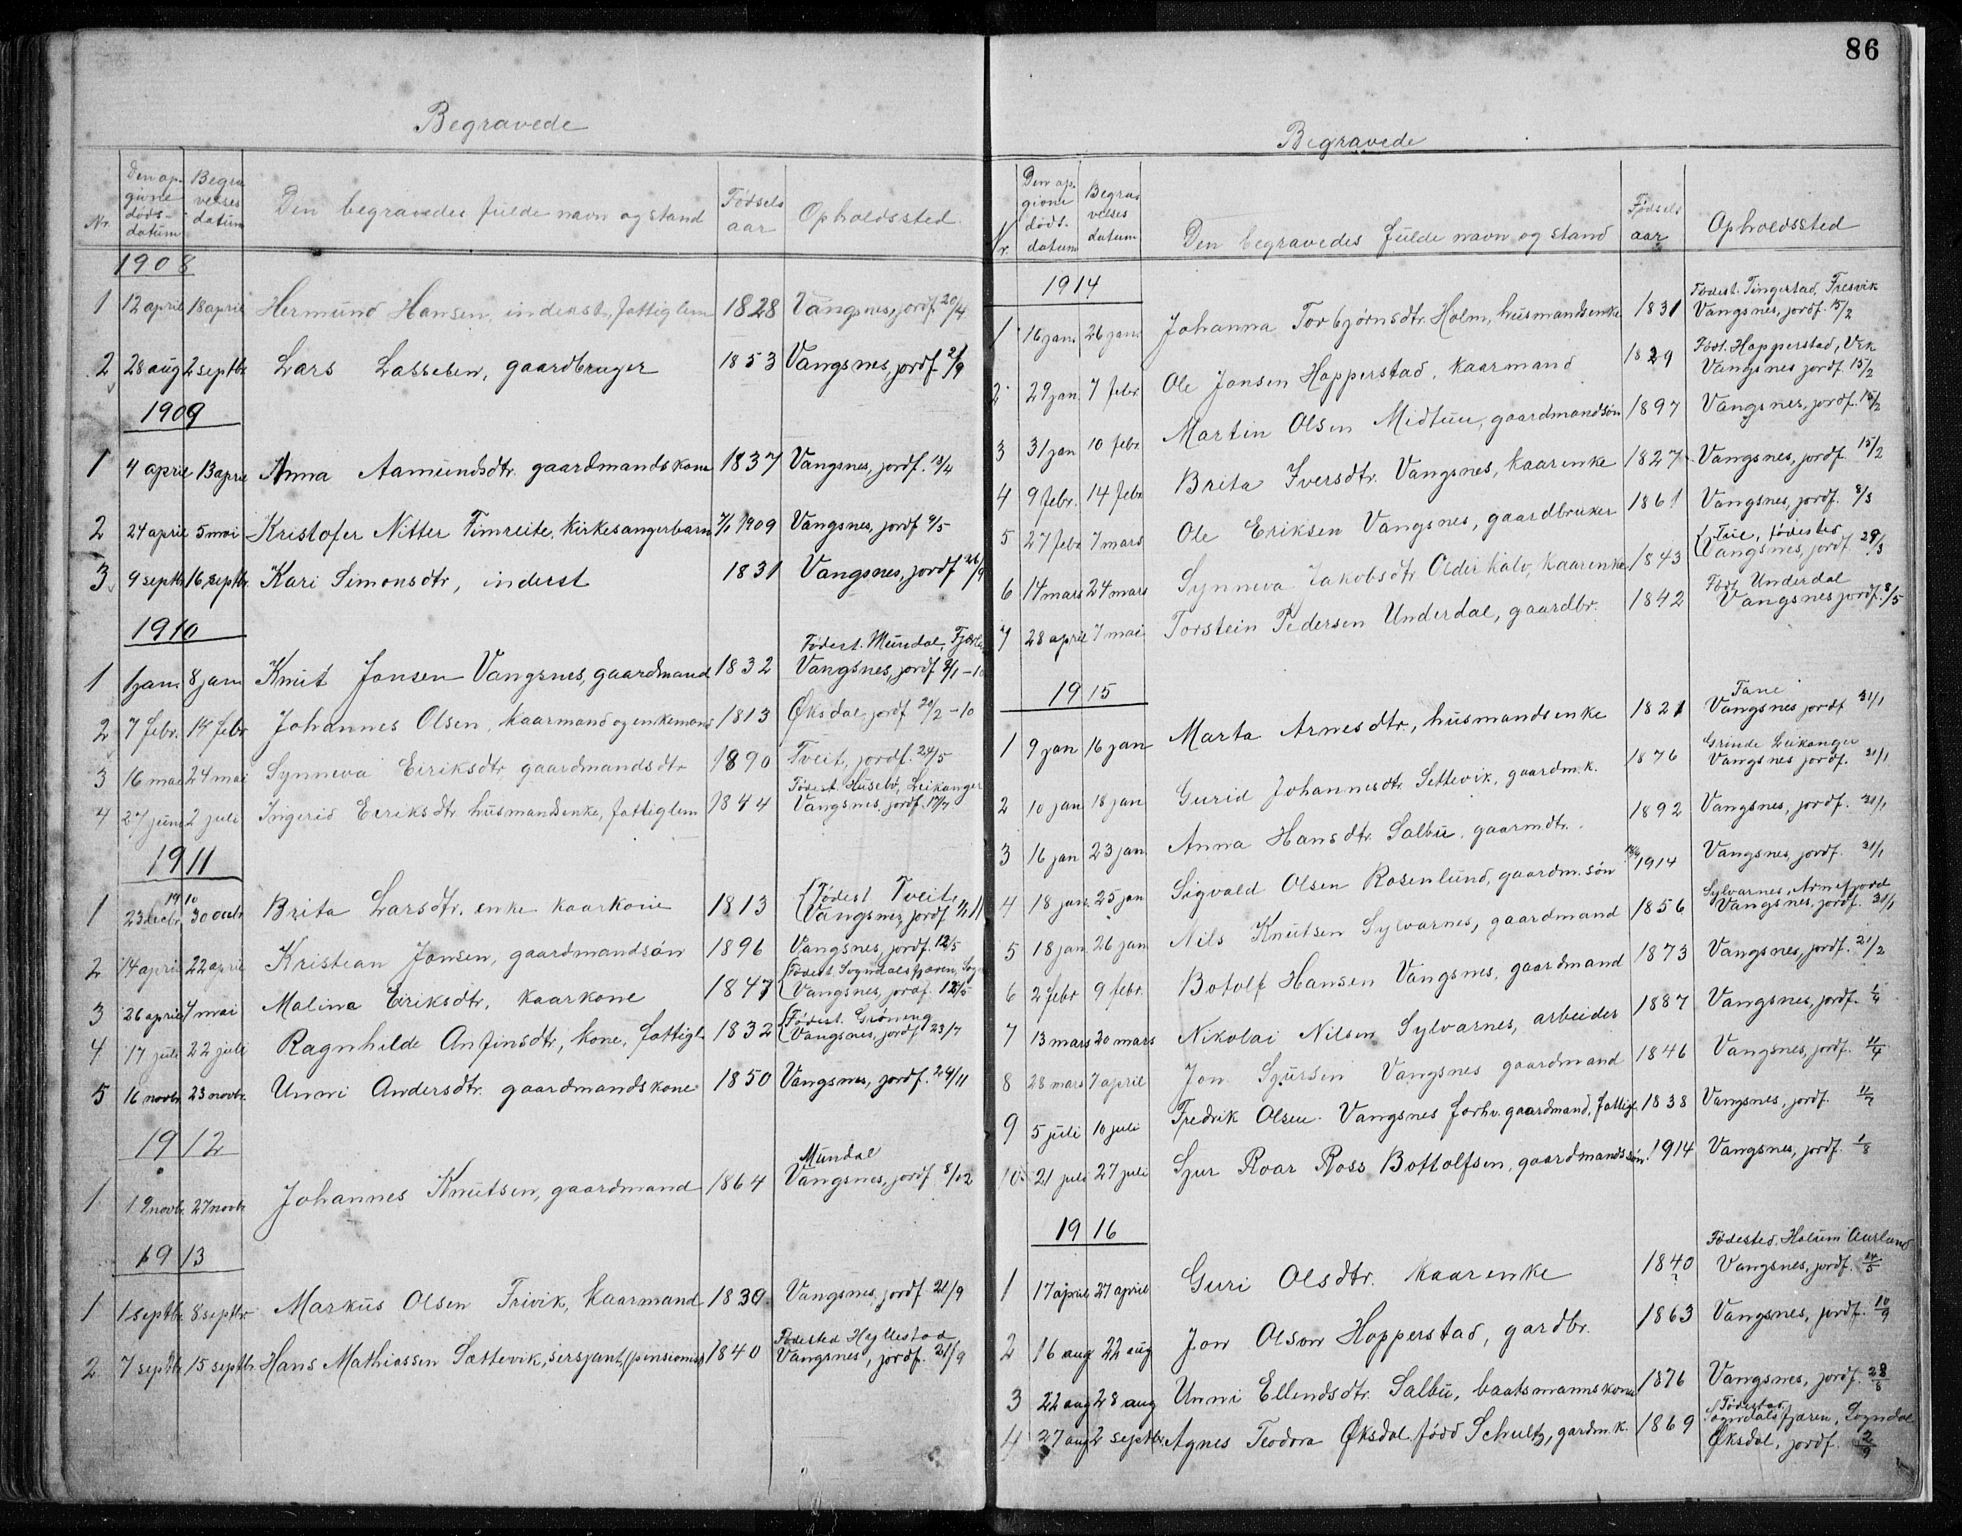 86
Begravede
Nr. Den opgivne dødsdatum Begravelses datum Den begravedes fulde navn og stand Fødsels aar Opholdssted
1908
1 12 april 18 april Hermund Hansen, inderst, fattiglem 1828 Vangsnes, jordf. 20/4
2 28 aug 2 septbr Lars Lassesen, gaardbruger 1853 Vangsnes, jordf. 2/9
1909
1 4 april 13 april Anna Aamundsdtr. gaardmandskone 1837 Vangsnes, jordf. 13/4
2 24 april 5 mai Kristofer Nitter Fimreite, Kirkesangerbarn 7/1 1909 Vangsnes, jordf 9/5
3 9 septbr 16 septbr. Kari Simonsdtr, inderst 1831 Vangsnes, jordf 26/9
1910
Fødest. Mundal, Fjærl
1 1 jan. 8 jan Knut Jonsen Vangsnes, gaardmand 1832 Vangsnes, jordf 9/1-10
2 7 febr. 14 febr Johannes Olsen, kaarmand og enkemand 1813 Øksdal, jordf 20/2-10
3 16 mai 24 mai Synneva Eiriksdtr gaardmandsdtr 1890 Tveit, jordf. 24/5
Fødest. Husebø, Leikanger
4 27 juni 2 juli Ingerid Eiriksdtr husmandsenke, fattiglem 1844 Vangsnes, jordf. 17/7
1911
19 10
Fødest Tveit,
1 23 octr 30 octr Brita Larsdtr. enke kaarkone 1813 Vangsnes, jordf 1/1 11
2 14 april 22 april Kristian Jonsen, gaardmandsøn 1896 Vangsnes, jordf. 12/5
Fødest. Sogndalsfjæren, Sogn
3 26 april 4 mai Malina Eiriksdtr, kaarkone 1847 Vangsnes, jordf. 12/5
Fødest. Grøneng
4 17 juli 22 juli Ragnhilde Anfinsdtr, kone, fattigl. 1832 Vangsnes, jordf 23/7
5 16 novbr. 23 novbr. Unni Andersdtr. gaardmandskone 1850 Vangsnes, jordf. 24/11
1912
Mundal
1 19 novbr. 27 novbr Johannes Knutsen, gaardmand 1864 Vangsnes, jordf 8/12
1913
1 1 septbr. 8 septbr. Markus Olsen Frivik, kaarmand 1830 Vangsnes, jordf 21/9
Fødested Hyllestad,
2 7 septbr 15 septbr. Hans Mathiassen Sættevik, sersjant, (pensionist) 1840 Vangsnes, jordf. 21/9
Begravede
Nr. Den opgivne dødsdatum Begravelses datum Den begravedes fulde navn og stand Fødsels aar Opholdssted
1914
Fødest. Tingestad, Fresvik
1 16 jan. 26 jan. Johanna Torbjørnsdtr. Holm, husmandsenke 1831 Vangsnes, jordf. 15/2
Fød. Hopperstad, Vik
2 29 jan. 7 febr. Ole Jonsen Hopperstad, kaarmand 1829 Vangsnes jordf. 15/2
3 31 jan 10 febr. Martin Olsen Midtun, gaardmandsøn 1897 Vangsnes, jordf. 15/2
4 9 febr. 14 febr Brita Iversdtr. Vangsnes, kaarenke 1827 Vangsnes, jordf. 15/2
5 27 febr 7 mars Ole Eriksen Vangsnes, gaardbruker 1861 Vangsnes, jordf. 8/3
Tue, fødested
6 14 mars 24 mars Synneva Jakobsdtr Olderhalv, kaarenke 1843 Vangsnes, jordf. 29/3
Fød. Underdal
7 28 april 7 mai Torstein Pedersen Underdal, gaardbr. 1842 Vangsnes jordf. 8/5
1915
1 9 jan 16 jan Marta Arnesdtr., husmandsenke 1821 Vangsnes jordf 31/1
Grinde Leikanger
2 10 jan 18 jan Gurid Johannesdtr Settevik, gaardm.k. 1876 Vangsnes jordf. 31/1
3 16 jan 23 jan. Anna Hansdtr. Salbu, gaarmdtr. 1892 Vangsnes, jordf. 31/1
4 18 jan. 25 jan Sigvald Olsen Rosenlund, gaardm.søn 1914 Vangsnes, jordf. 31/1
Sylvarnes, Arnefjord
5 18 jan. 26 jan Nils Knutsen Sylvarnes, gaardmand 1856 Vangsnes, jordf. 31/1
6 2 febr 9 febr. Botolf Hansen Vangsnes, gaardmand 1873 Vangsnes, jordf. 21/2
7 13 mars 20 mars Nikolai Nilsen Sylvarnes, arbeider 1887 Vangsnes, jordf. 1/4
8 28 mars 7 april Jon Sjursen Vangsnes gaardmand 1846 Vangsnes, jordf. 11/4
9 5 juli 10 juli Fredrik Olsen Vangsnes forhv. gaardmand, fattigl. 1838 Vangsnes, jordf. 11/7
10 21 juli 27 juli Sjur Roar Ross Bottolfsen, gaardmandssøn. 1914 Vangsnes, jordf. 1/8
1916
Fødested. Holum Aurland
1 17 april 27 april Guri Olsdtr. kaarenke 1840 Vangsnes, jordf. 14/5
2 16 aug 22 aug Jon Olson Hopperstad, gardbr. 1863 Vangsnes, jordf. 10/9
3 22 aug 28 aug Unni Ellendsdtr. Salbu, baatsmannskona 1876 Vangsnes, jordf. 28/8
Fødestad Sogndalsfjæren, Sogndal
4 27 aug 2 septbr. Agnes Teodora Øksdal. fødd Schultz, gardm.k. 1869 Øksdal, jordf. 2/9